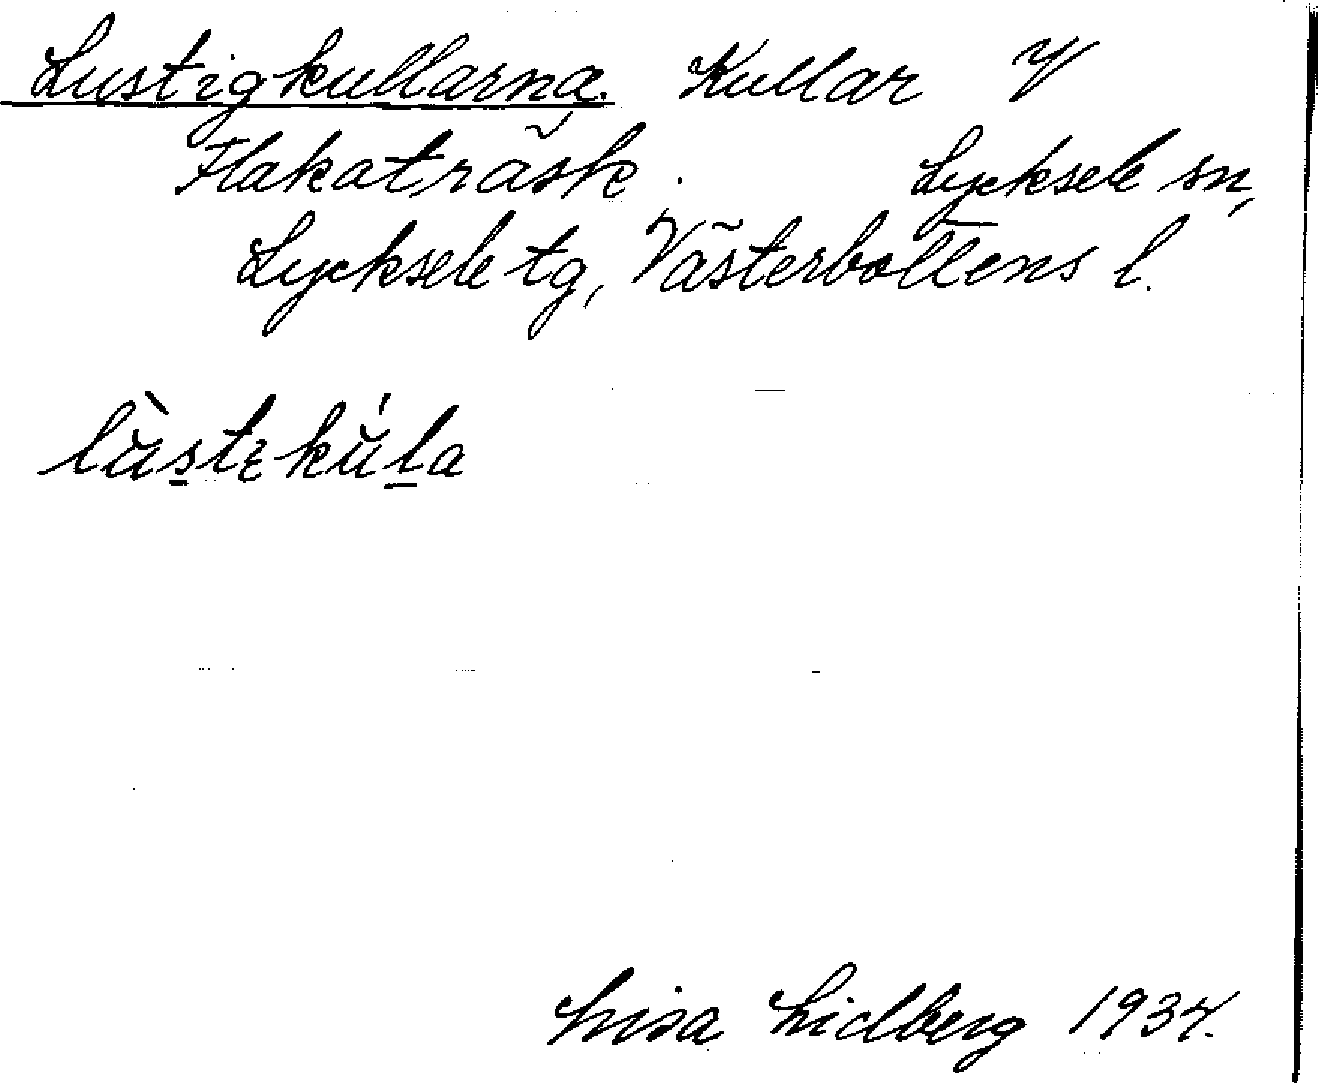 Lustigkullarna. Kullar V
Flakaträsk. Lycksele sn,
Lycksele tg, Västerbottens l.
Lisa Lidberg 1934.